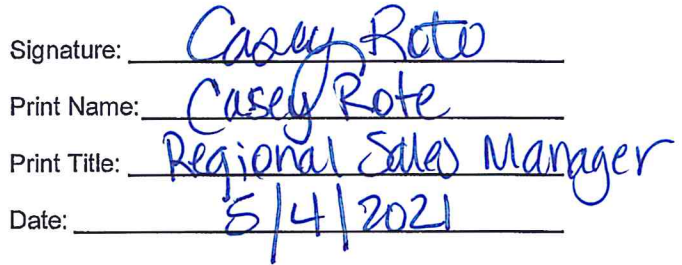 Signature: Casey Rote
Print Name: Casey Rote
Print Title: Regional Sales Manager
Date: 5/4/2021